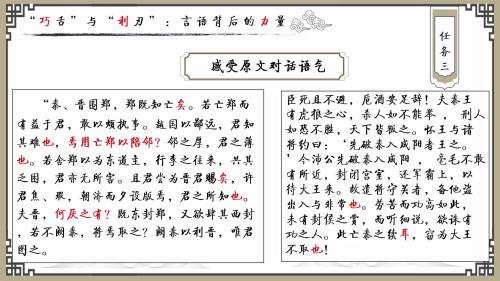 “巧舌”与“利刃”：言语背后的力量
任务三
感受原文对话语气
“秦、晋围郑，郑既知亡矣。若亡郑而
有益于君，敢以烦执事。越国以鄙远，君知
其难也，焉用亡郑以陪邻？邻之厚，君之薄
也。若舍郑以为东道主，行李之往来，共其
乏困，君亦无所害。且君尝为晋君赐矣，许
君焦、瑕，朝济而夕设版焉，君之所知也。
夫晋，何厌之有？既东封郑，又欲肆其西封
，若不阙秦，将焉取之？阙秦以利晋，唯君
图之。
臣死且不避，卮酒安足辞！夫秦王
有虎狼之心，杀人如不能举，刑人
如恐不胜，天下皆叛之。怀王与诸
将约曰：‘先破秦入咸阳者王之。
’今沛公先破秦入咸阳，毫毛不敢
有所近，封闭宫室，还军霸上，以
待大王来。故遣将守关者，备他盗
出入与非常也。劳苦而功高如此，
未有封侯之赏，而听细说，欲诛有
功之人。此亡秦之续耳，窃为大王
不取也！